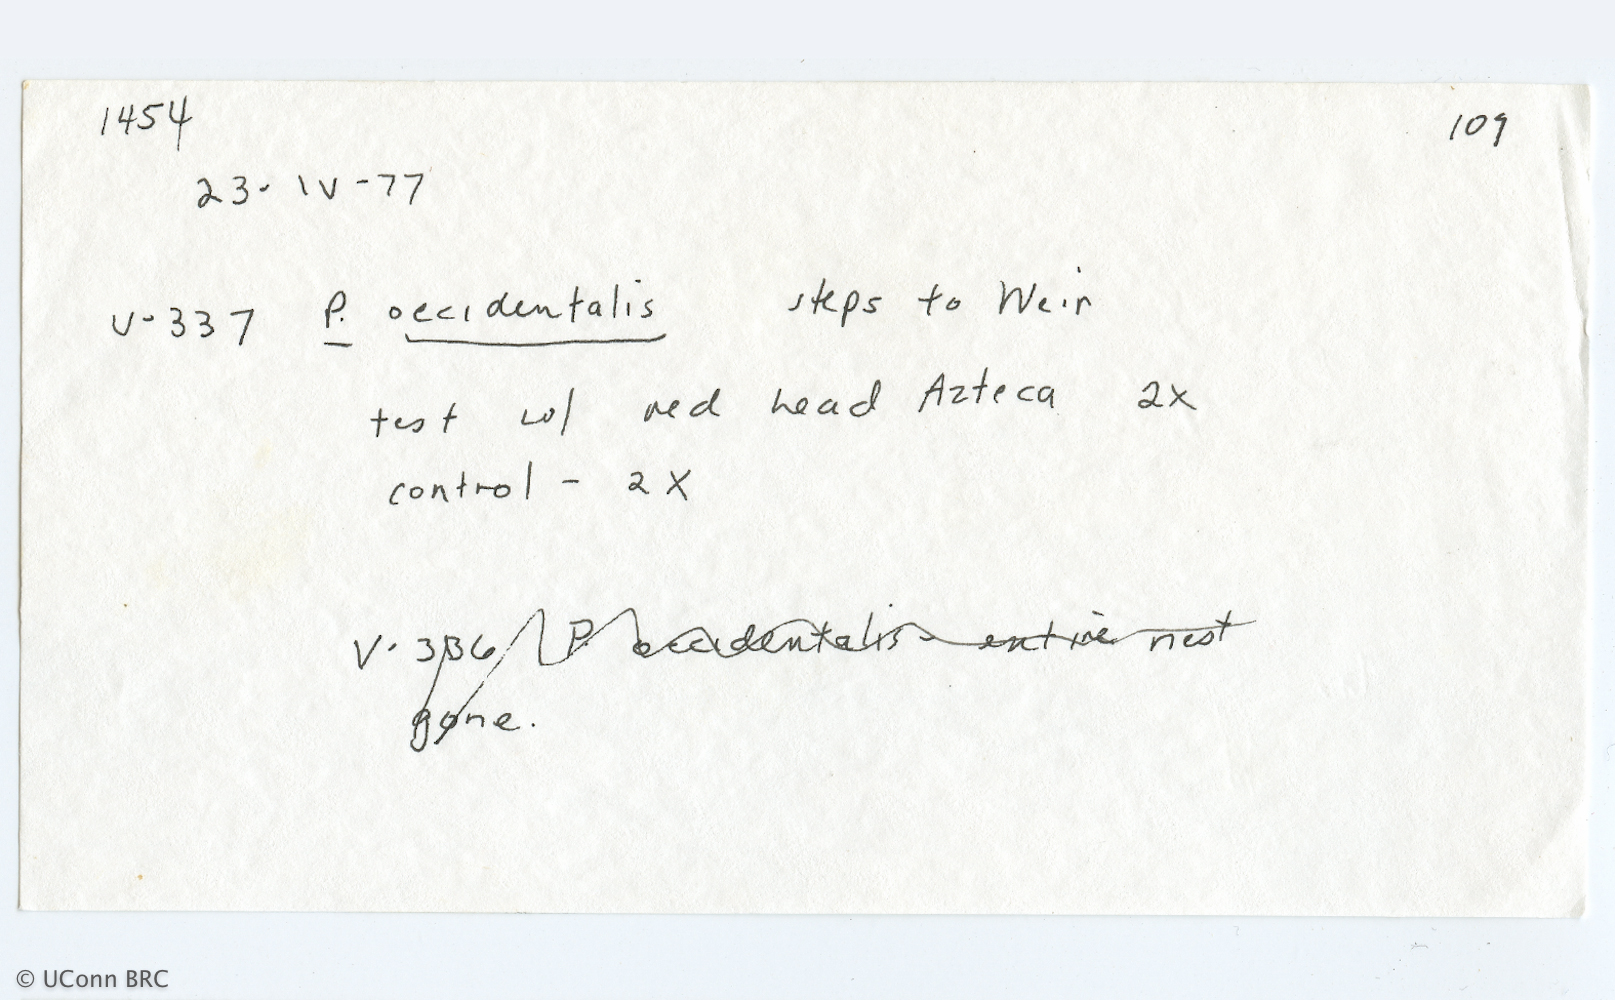 1454
109
23-IV-77
V-337 P. occidentalis steps to Weir
test w/ red head Azteca 2x
control - 2X
V-336 P occidentalis - entire nest
gone.
© UConn BRC